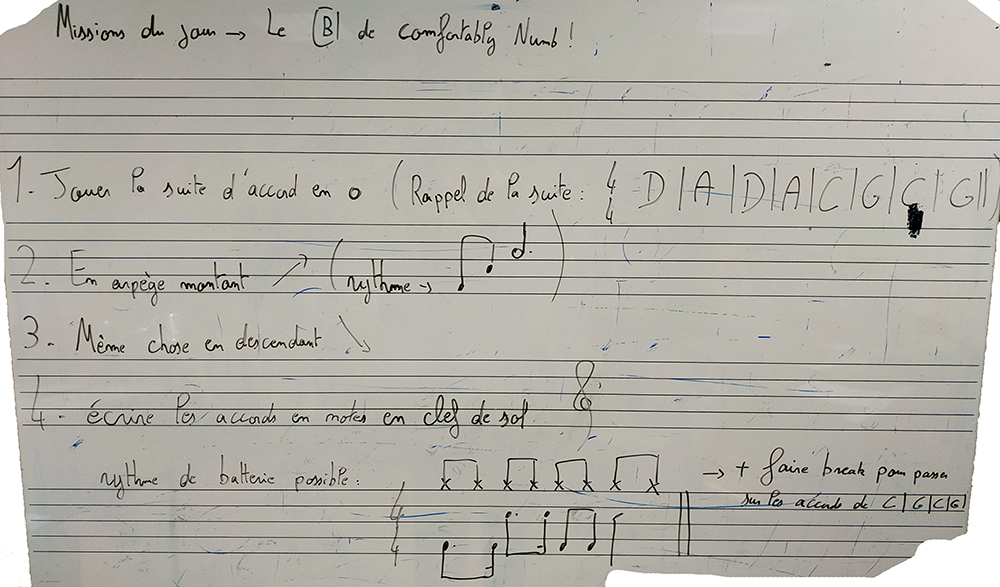 Missions du jour → Le B de comfortably Numb!
1. Jouer la suite d'accord en o (Rappel de la suite : 4/4 D | A | D | A | C | G | C | G ||)
2. En arpège montant ↗ (rythme →
3. Même chose en descendant ↘
4. écrire les accords en notes en clef de sol
rythme de batterie possible :
→ + faire break pour passer
sur les accords de C | G | C | G |
4/4